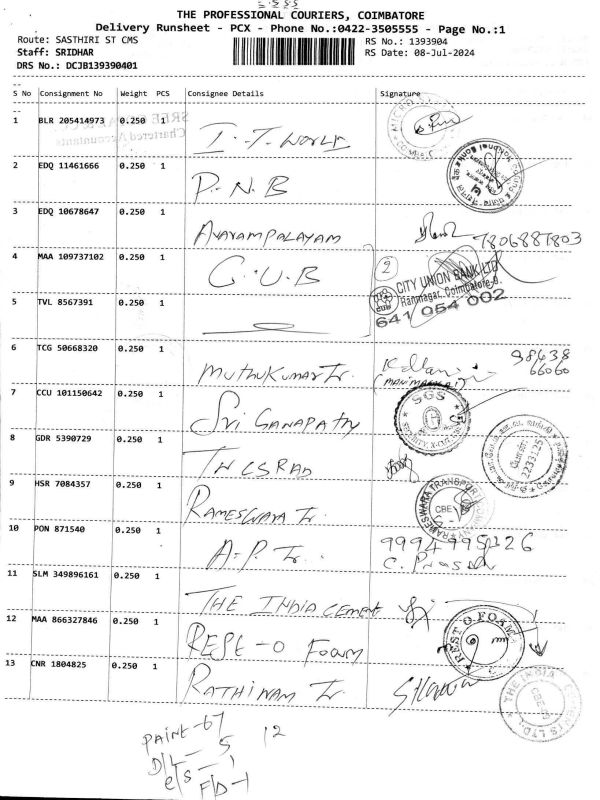 THE PROFESSIONAL COURIERS, COIMBATORE
Delivery Runsheet - PCX - Phone No.:0422-3505555 - Page No.:1
Route: SASTHIRI ST CMS
RS No.: 1393904
Staff: SRIDHAR
RS Date: 08-Jul-2024
DRS No.: DCJB139390401
S No Consignment No Weight PCS Consignee Details Signature
1 BLR 205414973 0.250 1
I.T. World
2 EDQ 11461666 0.250 1
P.N.B
3 EDQ 10678647 0.250 1
Avarampalayam 7806887803
4 MAA 109737102 0.250 1
C.U.B 2
CITY UNION BANK LTD
Ramnagar, Coimbatore-9.
641 054 002
5 TVL 8567391 0.250 1
6 TCG 50668320 0.250 1
Muthukumar Tr. 98438
66060
7 CCU 101150642 0.250 1
Sri Ganapathy
SGS
8 GDR 5390729 0.250 1
TNCSRAD
2233125
9 HSR 7084357 0.250 1
Rameswara Tr.
RAMESWARA TRANSPORT
CBE
10 PON 871540 0.250 1
A.P. Tr. 9994995226
11 SLM 349896161 0.250 1
THE INDIA CEMENT
12 MAA 866327846 0.250 1
REST-O Foam
REST O FOAM
13 CNR 1804825 0.250 1
Rathinam Tr.
THE INDIA CEMENTS LTD.
CBE-09
Paint-67
D/L - 5 12
e/s - 1
F/D-1